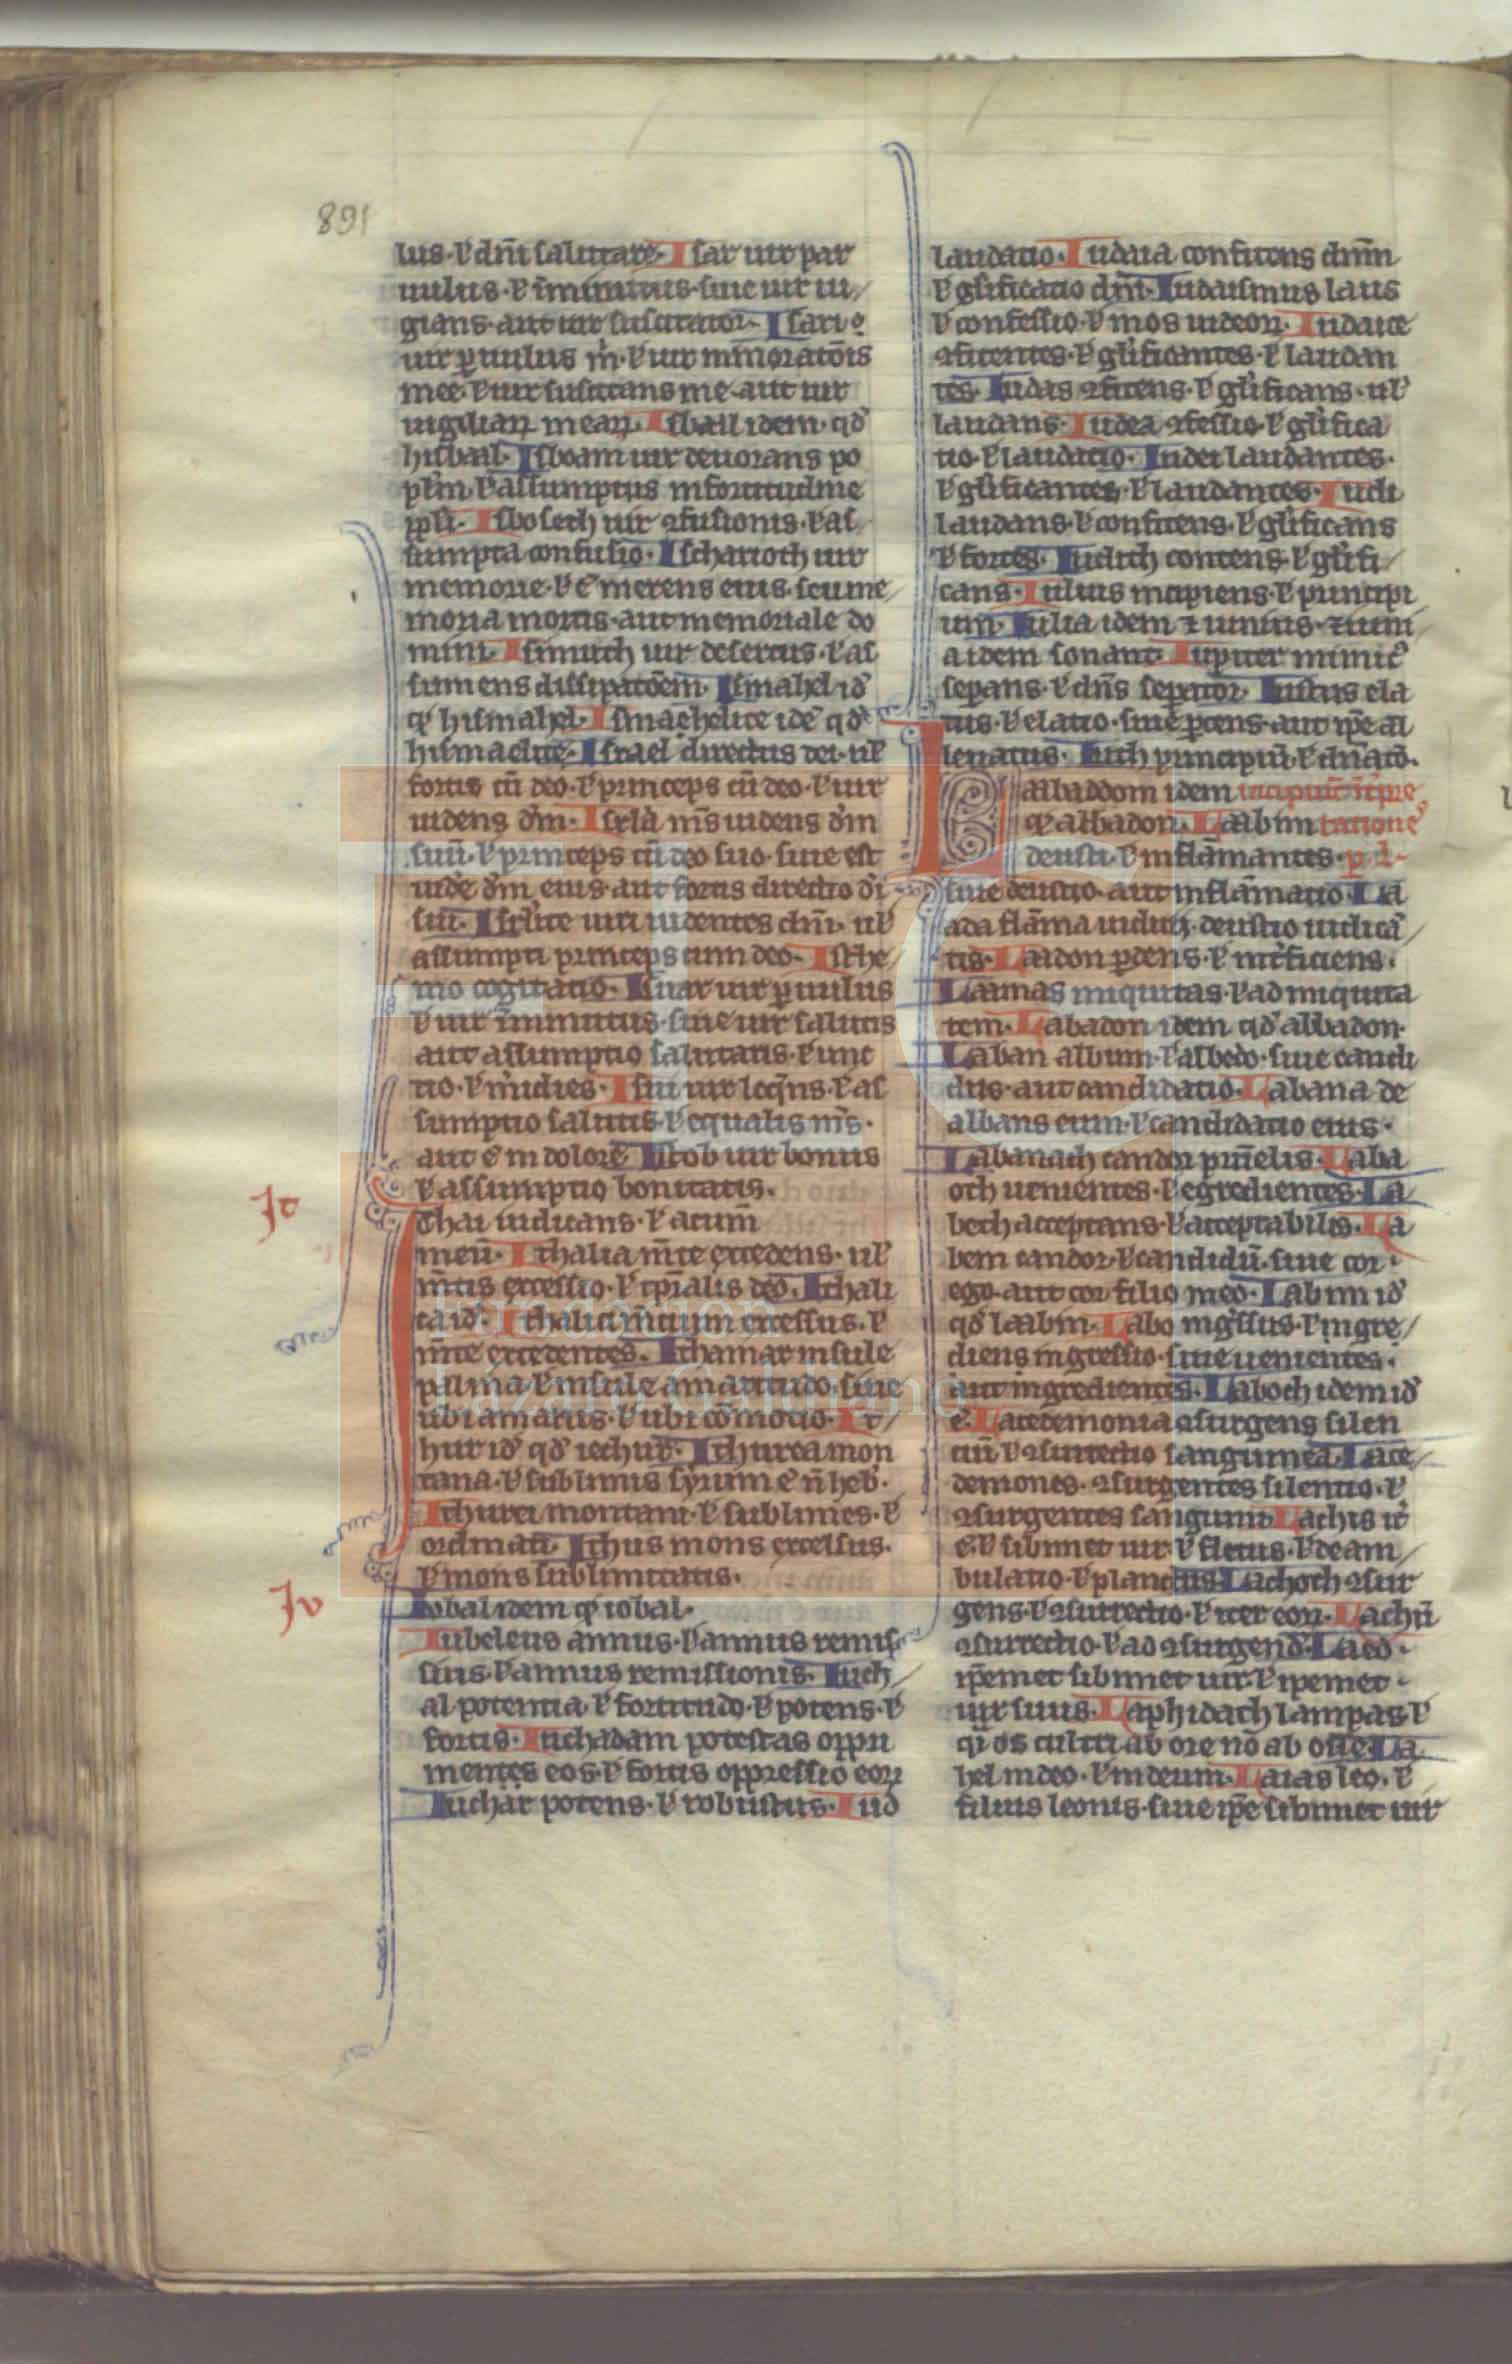 891
lus. ł dn̄i salutare. Isar uir par
uulus. ł īminutus. siue uir iu
gians. aut uir suscitator. Isari
uir ꝑuulus m̄. ł uir minoratōis
mee. ł uir suscitans me. aut uir
uigiliaꝝ meaꝝ. Isbaal idem. qd̓
hisbaal. Isboam uir deuorans po
pl̄m. ł assumptus in fortitudine
Isboseth uir ꝯfusionis. ł as
sumpta confusio. Ischarioth uir
memorie. ł ē merens eius. seu me
moria mortis. aut memoriale do
mini. Ismuth uir desertus. ł as
sumens dissipatōem. Ismahel id̓
ꝙ hismahel. Ismaehelite idē qd̓
hismaelite. Israel directus dei. ul̓
fortis cū deo. ł princeps cū deo. ł uir
uidens d̓m. m̄s uidens d̓m
suū. ł princeps cū deo suo. siue est
uid̓e d̓m eius. aut fortis directio d̓i
sui. Isrl̓ite uiri uidentes dn̄m. ul̓
assumpti princeps cum deo. Isthe
mo cogitatio. uir ꝑuulus
ł uir īminutus. siue uir salutis
aut assumptio salutaris. ł unc
tio. ł m̓idies. Isui uir
sumptio salutis. ł equalis m̄s.
aut ē in dolore. Istob uir bonus
ł assumptio bonitatis.
It
Ithai iudicans. ł
meū. Ithalia m̄te excedens. ul̓
m̄tis excessio. ł tp̄ralis deo. Ithali
ca id̓. Ithalici m̄tium excessus. ł
m̄te excedentes. Ithamar insule
palma. ł insule amaritudo. siue
ubi amarus. ł ubi cōmotio. It
hur id̓ qd̓ iethur. Ithurea mon
tana. ł sublimis syrum ē n̄ heb̓.
Ithurei montani. ł sublimes. ł
ordinati. Ithus mons excelsus.
ł mons sublimitatis.
Iv
Iobal idem ꝙ iobal.
Iubeleus annus. ł annus remis
sius. ł annus remissionis. Iuch
al potentia. ł fortitudo. ł potens. ł
fortis. Iuchadam potestas oppri
mentes eos. ł fortis oppressio eoꝝ
Iuchar potens. ł robustus. Iud
laudatio. Iudaia confitens dn̄m
ł gl̓ificatio dn̄i. Iudaismus laus
ł confessio. ł mos iudeoꝝ. Iudaice
ꝯfitentes. ł gl̓ificantes. ł laudan
tes. Iudas ꝯfitens. ł gl̓ificans. ul̓
laudans. Iudea ꝯfessio. ł gl̓ifica
tio. ł laudatio. Iudei laudantes.
ł gl̓ificantes. ł laudantes. Iudi
laudans. ł confitens. ł gl̓ificans
ł fortes. Iudith contens. ł gl̓ifi
cans. Iulius incipiens. ł principi
um. Iulia idem ⁊ iunius. ⁊ iuni
a idem sonant. Iupiter inimic̓
seꝑans. ł dn̄s seꝑator. Iustus ela
tus. ł elatio. siue ꝑcens. aut ip̄e al
leuatus. Iuth principiū. ł dn̄atō.
Laabaddom idem incipiūt īt̓pre
ꝙ abbadon. Laabim tatione
deusti. ł inflāmantes. p. l.
siue deustio. aut inflāmatio. La
ada flāma deustio
tis. Laadon ꝑdens. ł int̓ficiens.
Laamas iniquitas. ł ad iniquita
tem. Labadon idem qd̓ abbadon.
Laban album. ł albedo. siue candi
dus. aut candidatio. Labana de
albans eum. ł candidatio eius.
Labanach candor Laba
oth uenientes. ł egredientes. La
bech acceptans. ł acceptabilis. La
bem candor. ł candidū. siue cor
ego. aut cor filio meo. Labim id̓
qd̓ laabim. Labo ing̓ssus. ł ingre
diens ingressio. siue uenientes.
aut ingredientes. Laboch idem id̓
ē. Lacedemonia ꝯsurgens silen
tiū. ł ꝯsurrectio sanguinea. Lace
demones. ꝯsurgentes silentio. ł
ꝯsurgentes sanguini. Lachis it̓
ē. ł sibimet uir. ł fletus. ł deam
bulatio. ł planctus. Lachoch ꝯsur
gens. ł ꝯsurrectio. ł iter eoꝝ. Lachū
ꝯsurrectio. ł ad ꝯsurgend̓. Laed.
ip̄emet sibimet uir. ł ipemet
uir suus. Laphidach lampas. ł
os ab ore nō ab La
hel in deo. ł in deum. Laias leo. ł
filius leonis. siue ip̄e sibimet uir
FLG
Fundación
Lázaro Galdiano